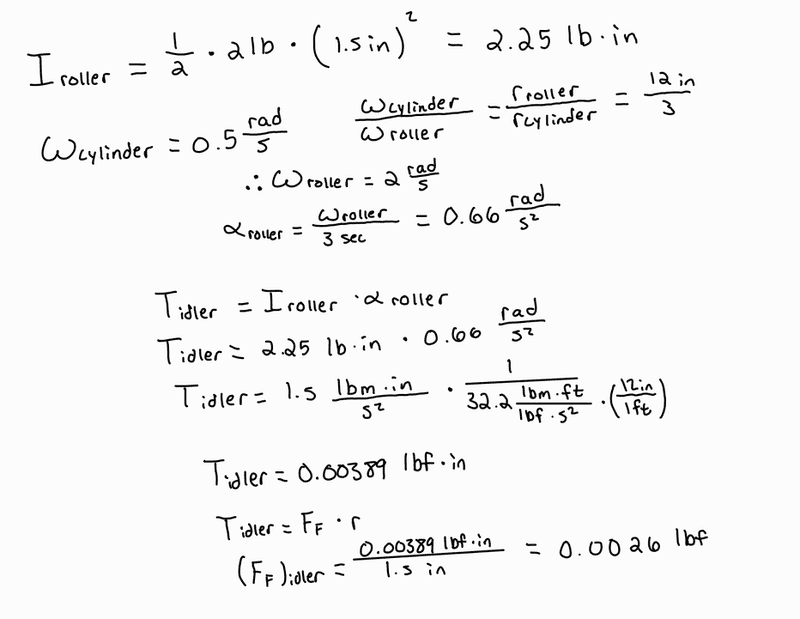 I roller = 1/2 · 2 lb · (1.5 in)² = 2.25 lb·in
ω cylinder = 0.5 rad/s    ω cylinder/ω roller = r roller/r cylinder = 12 in/3
∴ ω roller = 2 rad/s
α roller = ω roller/3 sec = 0.66 rad/s²
T idler = I roller · α roller
T idler = 2.25 lb·in · 0.66 rad/s²
T idler = 1.5 lbm·in/s² · 1/(32.2 lbm·ft/lbf·s² · (12in/1ft))
T idler = 0.00389 lbf·in
T idler = F_F · r
(F_F) idler = 0.00389 lbf·in/1.5 in = 0.0026 lbf